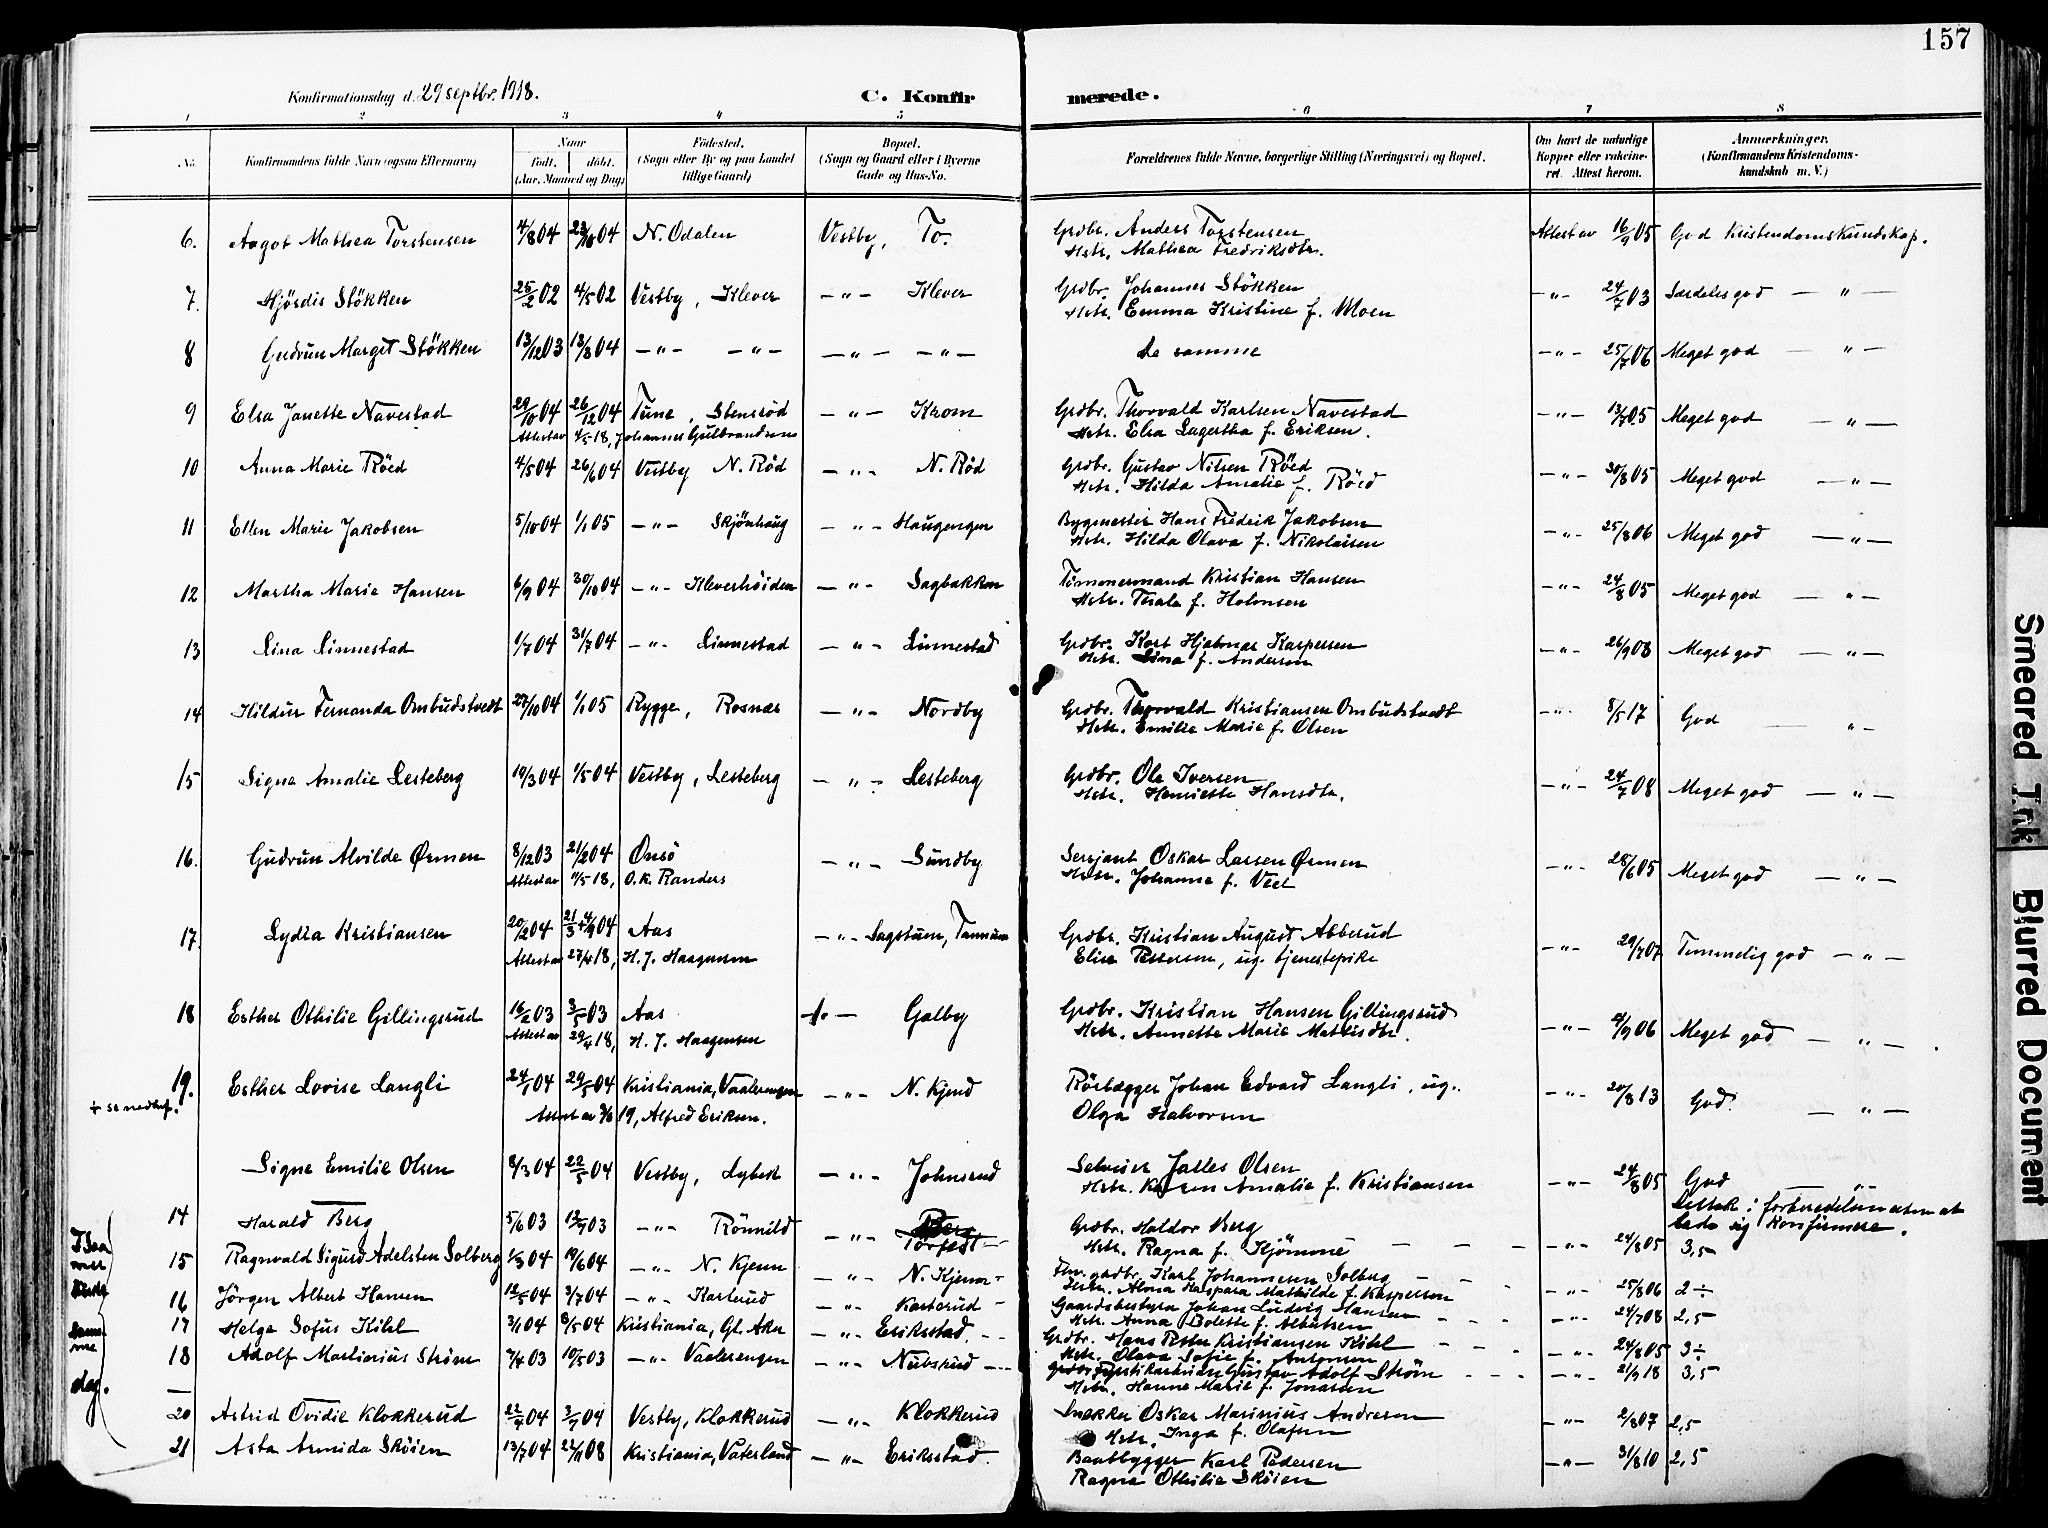 157
Konfirmationsdag d. 29 septbr. 1918.
C. Konfirmerede.
1 2 3 4 5 6 7 8
No. Konfirmandens fulde Navn (ogsaa Efternavn) Naar født. døbt. (Aar, Maaned og Dag) Fødested. (Sogn eller By og paa Landet tillige Gaard) Bopæl. (Sogn og Gaard eller i Byerne Gade og Hus-No. Forældrenes fulde Navne, borgerlige Stilling (Næringsvei) og Bopæl. Om havt de naturlige Kopper eller vakcineret. Attest herom. Anmerkninger. (Konfirmandens Kristendomskundskab m. V.)
6. Aagot Mathea Torstensen 4/8 04 23/10 04 N. Odalen Vestby, To. Grdbr. Anders Torstensen Attest av 16/9 05 God Kristendomskundskap.
Hstr. Mathea Fredriksdtr.
7. Hjördis Stökken 25/2 02 4/5 02 Vestby, Klever —"— Klever Grdbr. Johannes Stökken —"— 24/7 03 Særdeles god —"—
Hstr. Emma Kristine f. Moen
8 Gudrun Margit Stökken 13/12 03 13/3 04 —"— —"— —"— —"— de samme —"— 25/7 06 Meget god —"—
9 Elsa Janette Navestad 29/10 04 26/12 04 Tune, Stensröd —"— Krom Grdbr. Thorvald Karlsen Navestad —"— 13/7 05 Meget god —"—
Attest av 4/5 18, Johannes Gulbrandsens Hstr. Elsa Lagertha f. Eriksen.
10 Anna Marie Röed 4/5 04 26/6 04 Vestby N. Röd —"— N. Röd Grdbr. Gustav Nilsen Röed —"— 30/8 05 Meget god —"—
Hstr. Hilda Amalie f. Röed
11 Ellen Marie Jakobsen 5/10 04 1/1 05 —"— Skjönhaug —"— Haugengen Bygmester Hans Fredrik Jakobsen —"— 25/8 06 Meget god —"—
Hstr. Hilda Olava f. Nikolaisen
12 Martha Marie Hansen 6/9 04 30/10 04 —"— Kleverhöiden —"— Sagbakken Tömmermand Kristian Hansen —"— 24/8 05 Meget god —"—
Hstr. Terale f. Holmsen
13 Lina Linnestad 1/7 04 31/7 04 —"— Linnestad —"— Linnestad Grdbr. Kort Hjalmar Kaspersen —"— 26/9 08 Meget god —"—
Hstr. Lina f. Andersen
14 Hildur Fernanda Ombudstvedt 27/10 04 1/1 05 Rygge, Rosnæs —"— Nordby Grdbr. Thorvald Kristiansen Ombudstvedt —"— 8/5 17 God —"—
Hstr. Emilie Marie f. Olsen
15 Signe Amalie Lesteberg 19/3 04 1/5 04 Vestby, Lesteberg —"— Lesteberg Grdbr. Ole Iversen —"— 24/7 08 Meget god —"—
Hstr. Henriette Hansdtr.
16. Gudrun Alvilde Ørmen 8/12 03 21/2 04 Onsö —"— Sundby Sersjant Oskar Larsen Ørmen —"— 28/6 05 Meget god —"—
Attest av 11/5 18, O.K. Randers Hstr. Johanne f. Veel
17. Lydia Kristiansen 20/2 04 21/3 + 4/9 04 Aas —"— Sagstuen, Tannum Grdbr. Kristian August Abberud —"— 29/7 07 Temmelig god —"—
Attest av 27/4 18, H. J. Haagensen Elise Pettersen, ug. tjenestepike
18 Esther Othilie Gillingsrud 16/2 03 3/5 03 Aas —"— Galby Grdbr. Kristian Hansen Gillingsrud —"— 4/9 06 Meget god —"—
Attest av 29/4 18, H. J. Haagensen Hstr. Annette Marie Mathisdtr.
19. Esther Lovise Langli 24/1 04 29/5 04 Kristiania, Vaalerengen —"— N. Kjend Rörlægger Johan Edvard Langli, ug. —"— 20/8 13 God. —"—
+ se nedenf. Attest av 3/6 19, Alfred Eriksen. Olga Halvorsen
Signe Emilie Olsen 8/3 04 22/5 04 Vestby, Lybeck —"— Johnsrud Selveier Jalles Olsen —"— 24/8 05 God
Hstr. Karen Amalie f. Kristiansen
Deltok i forberedelsen uten at lade sig konfirmere.
I Saamer Kirke samme dag.
14 Harald Berg 5/6 03 12/7 03 —"— Rönnild —"— Berg Torfest Grdbr. Haldor Berg —"— 24/8 05 3,5
Hstr. Ragna f. Kjömme
15 Ragnvald Sigurd Adelsten Solberg 1/3 04 19/6 04 —"— N. Kjenn —"— N. Kjenn Fhv. grdbr. Karl Johannesen Solberg —"— 25/8 06 2÷
Hstr. Alma Kaspara Mathilde f. Kaspersen
16 Jörgen Albert Hansen 12/5 04 3/7 04 —"— Karterud —"— Karterud Gaardsbestyrer Johan Ludvig Hansen —"— 24/7 08 2,5
Hstr. Anna Bolette f. Albertsen
17 Helge Sofus Kihl 3/1 04 8/5 04 Kristiania, Gl. Aker —"— Eriksstad Grdbr. Hans Petter Kristiansen Kihl —"— 24/8 05 3÷
Hstr. Olava Sofie f. Antonsen
18 Adolf Martinius Ström 7/4 03 10/5 03 —"— Vaalerengen —"— Nubsrud Fabrikarbeider Gustav Adolf Ström —"— 21/9 18 3,5
Hstr. Hanne Marie f. Jonassen
20 Astrid Ovidie Klokkerud 22/4 04 3/7 04 Vestby, Klokkerud —"— Klokkerud Snekker Oskar Marinius Andresen —"— 2/8 07 2,5
Hstr. Inga f. Olafsen
21 Asta Armida Sköien 13/7 04 22/11 08 Kristiania, Vaterland —"— Eriksstad. Baatbygger Karl Pedersen —"— 31/8 10 2,5
Ragna Othilie Sköien
Smeared Ink
Blurred Document